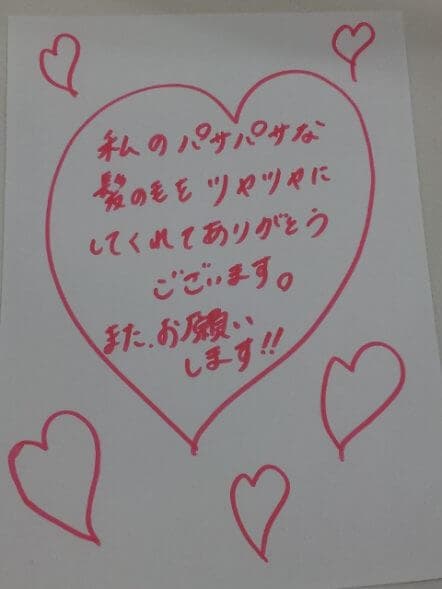 私のパサパサな
髪の毛をツヤツヤに
してくれてありがとう
ございます。
また、お願い
します!!